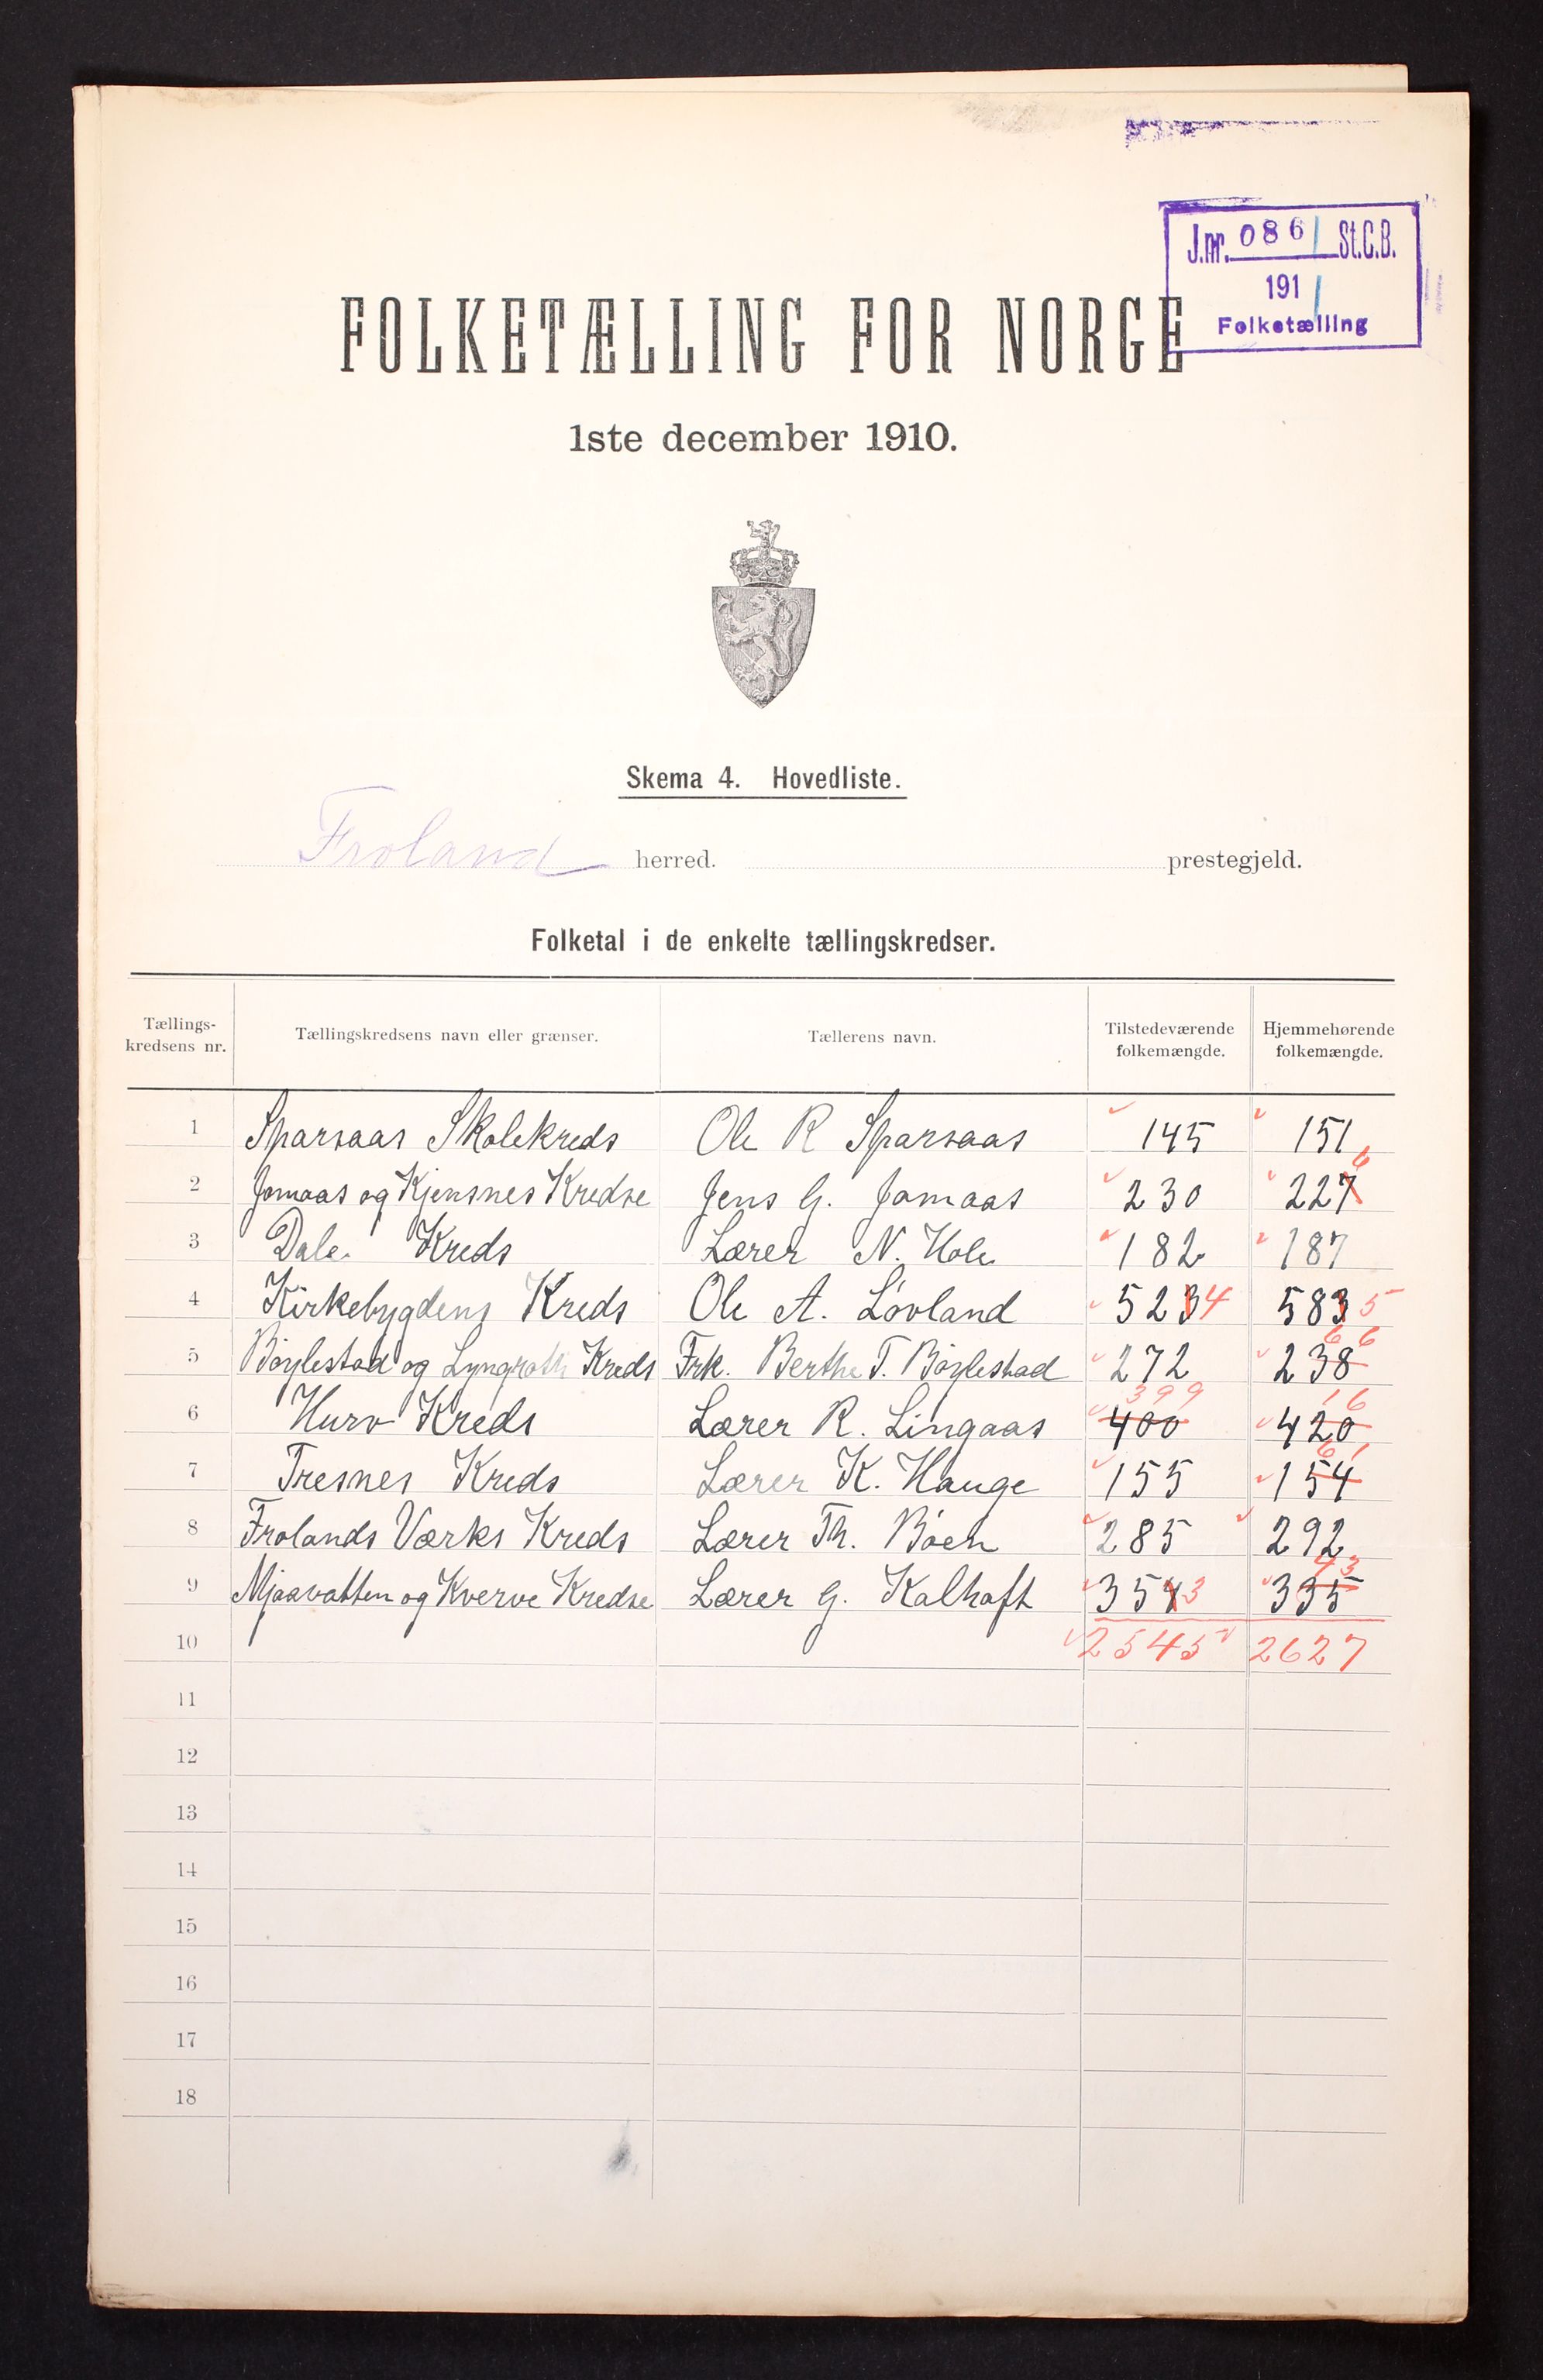 J.nr. 086 1 St.C.B.
191 1
Folketælling
FOLKETÆLLING FOR NORGE
1ste december 1910.
Skema 4. Hovedliste.
Froland herred. prestegjeld.
Folketal i de enkelte tællingskredser.
Tællings-kredsens nr. Tællingskredsens navn eller grænser. Tællerens navn. Tilstedeværende folkemængde. Hjemmehørende folkemængde.
1 Sparsaas Skolekreds Ole R Sparsaas 145 151
2 Jomaas og Kjensnes Kredse Jens G. Jomaas 230 227 6
3 Dale Kreds Lærer N. Hole 182 187
4 Kirkebygdens Kreds Ole A. Løvland 523 4 583 5
5 Bøylestad og Lyngroth Kreds Frk. Berthe T. Bøylestad 272 238 66
6 Hurv Kreds Lærer R. Lingaas 400 399 420 16
7 Tresnes Kreds Lærer K. Hauge 155 154 61
8 Frolands Værks Kreds Lærer Th. Bøen 285 292
9 Mjaavatten og Kverve Kredse Lærer G. Kalhaft 354 3 335 43
10 2545 2627
11
12
13
14
15
16
17
18